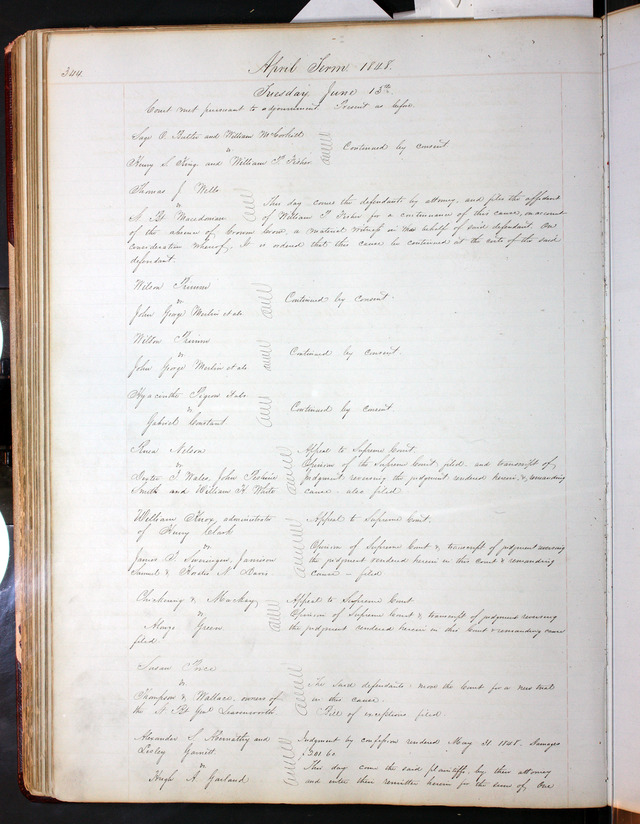 344.
April Term 1848.
Tuesday June 13th
Court met pursuant to adjournment Present as before.
Sage O. Butler and William
vs Continued by consent
Henry S. King and William P. Fisher
Thomas J. Wells
vs This day come the defendants by attorney, and files the affidavit
S. Bt. Macedonian of William P. Fisher for a continuance of this cause, on account
of the absence of a material witness in the behalf of said defendant. On
consideration whereof, It is ordered that this cause be continued at the costs of the said
defendant.
Wilson Primm
vs Continued by consent.
John George Merlin et als
Wilson Primm
vs Continued by consent.
John George Merlin et als
Hyacinthe Pigeon et als.
vs Continued by consent
Gabriel Constant
Nelson Appeal to Supreme Court.
vs Opinion of the Supreme Court filed and transcript of
T. Wales, John judgment reversing the judgment rendered herein, & remanding
Smith and William H. White cause also filed
William Knox, administrator Appeal to Supreme Court.
of Henry Clark
vs Opinion of Supreme Court & transcript of judgment reversing
James S. Swearingen, Jamison the judgment rendered herein in this Court & remanding
Samuel & N. Davis. cause – filed
& Mackay Appeal to Supreme Court
vs Opinion of Supreme Court & transcript of judgment reversing
Alonzo Green the judgment rendered herein in this Court & remanding cause
filed
Susan Price
vs The said defendants move the Court for a new trial
Thompson & Wallace, owners of in this cause.
the S. Bt. Genl. Leavenworth Bill of exceptions filed
Alexander S. Abernathy and Judgment by confession rendered May 31 1848. Damages
Lesley Garnett $301.60
vs This day come the said plaintiffs, by their attorney
Hugh A. Garland and enter their remitter herein for the sum of One